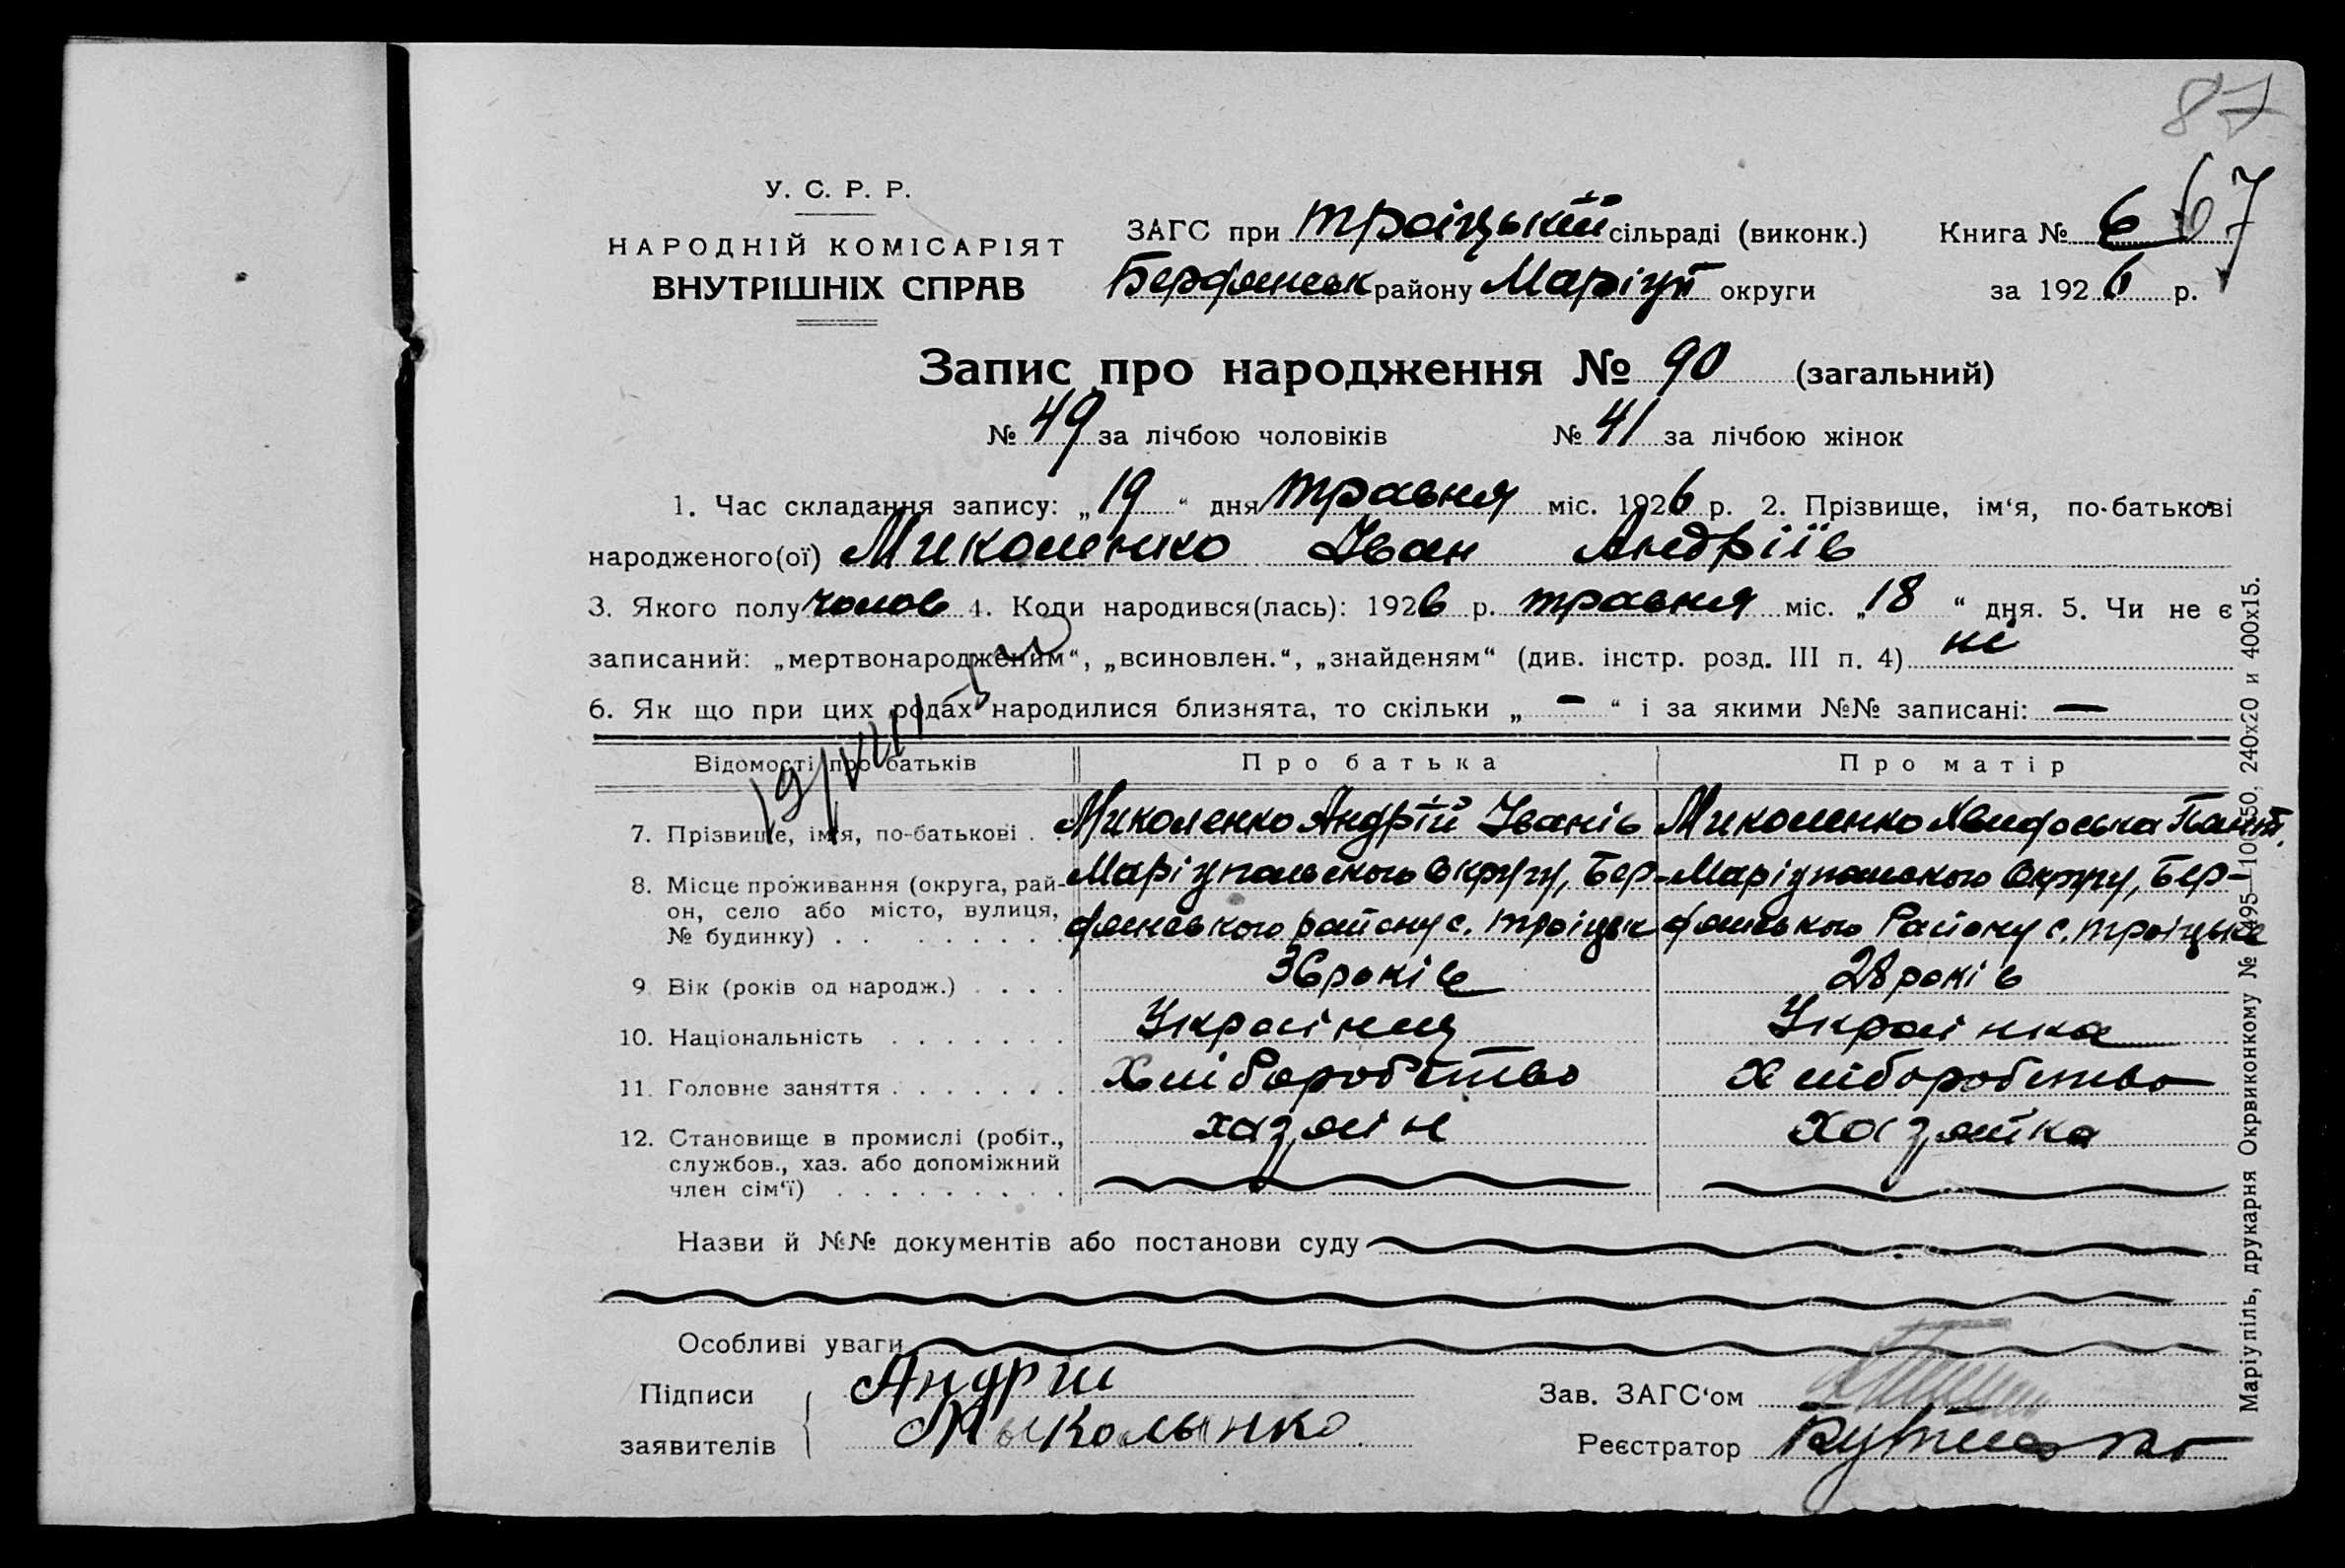 87
У. С. Р. Р.
НАРОДНІЙ КОМІСАРІЯТ
ВНУТРІШНІХ СПРАВ
ЗАГС при Троїцькій сільраді (виконк.) Книга № 6 67
Бердянськ району Маріуп округи за 1926 р.
Запис про народження № 90 (загальний)
№ 49 за лічбою чоловіків № 41 за лічбою жінок
1. Час складання запису: „19“ дня травня міс. 1926 р. 2. Прізвище, ім‘я, по-батькові
народженого(ої) Миколенко Іван Андріїв
3. Якого полу чолов 4. Коли народився(лась): 1926 р. травня міс. „18“ дня. 5. Чи не є
записаний: „мертвонародженим“, „всиновлен.“, „знайденям“ (див. інстр. розд. III п. 4) ні
6. Як що при цих родах народилися близнята, то скільки „ — “ і за якими №№ записані: —
Відомості про батьків Про батька Про матір
7. Прізвище, ім‘я, по-батькові . . Миколенко Андрій Іванів Миколенко Пант.
8. Місце проживання (округа, рай- Маріупольського Округу, Бер- Маріупольского Округу, Бер-
он, село або місто, вулиця, дянського району с. Троіцьк дянського Району с. Троіцьке
№ будинку) . . . . . . . . .
9. Вік (років од народж.) . . . . 36 років 28 років
10. Національність . . . . . . . Українец Українка
11. Головне заняття . . . . . . . Хліборобство Хліборобство
12. Становище в промислі (робіт., хазяїн Хазяйка
службов., хаз. або допоміжний
член сім‘ї) . . . . . . . . .
Назви й №№ документів або постанови суду
Особливі уваги
Підписи Андрш Зав. ЗАГС‘ом
заявителів Мыколынко Реєстратор
Маріупіль, друкарня Окрвиконкому № 495—10050. 240х20 и 400х15.